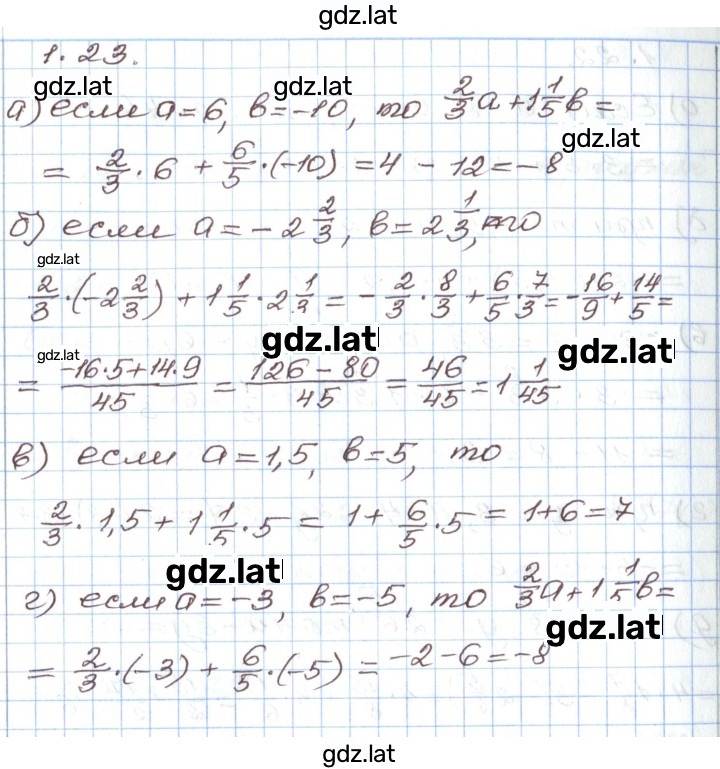 gdz.lat
1.23.
gdz.lat gdz.lat
а) если a=6, b=-10, то 2/3 a + 1 1/5 b =
gdz.lat
= 2/3 · 6 + 6/5 · (-10) = 4 - 12 = -8
б) если a = -2 2/3, b = 2 1/3, то
gdz.lat
2/3 · (-2 2/3) + 1 1/5 · 2 1/3 = - 2/3 · 8/3 + 6/5 · 7/3 = - 16/9 + 14/5 =
gdz.lat gdz.lat gdz.lat
= (-16·5+14·9)/45 = (126-80)/45 = 46/45 = 1 1/45
в) если a=1,5, b=5, то
2/3 · 1,5 + 1 1/5 · 5 = 1 + 6/5 · 5 = 1+6=7
gdz.lat
г) если a=-3, b=-5, то 2/3 a + 1 1/5 b =
gdz.lat
= 2/3 · (-3) + 6/5 · (-5) = -2-6=-8
gdz.lat